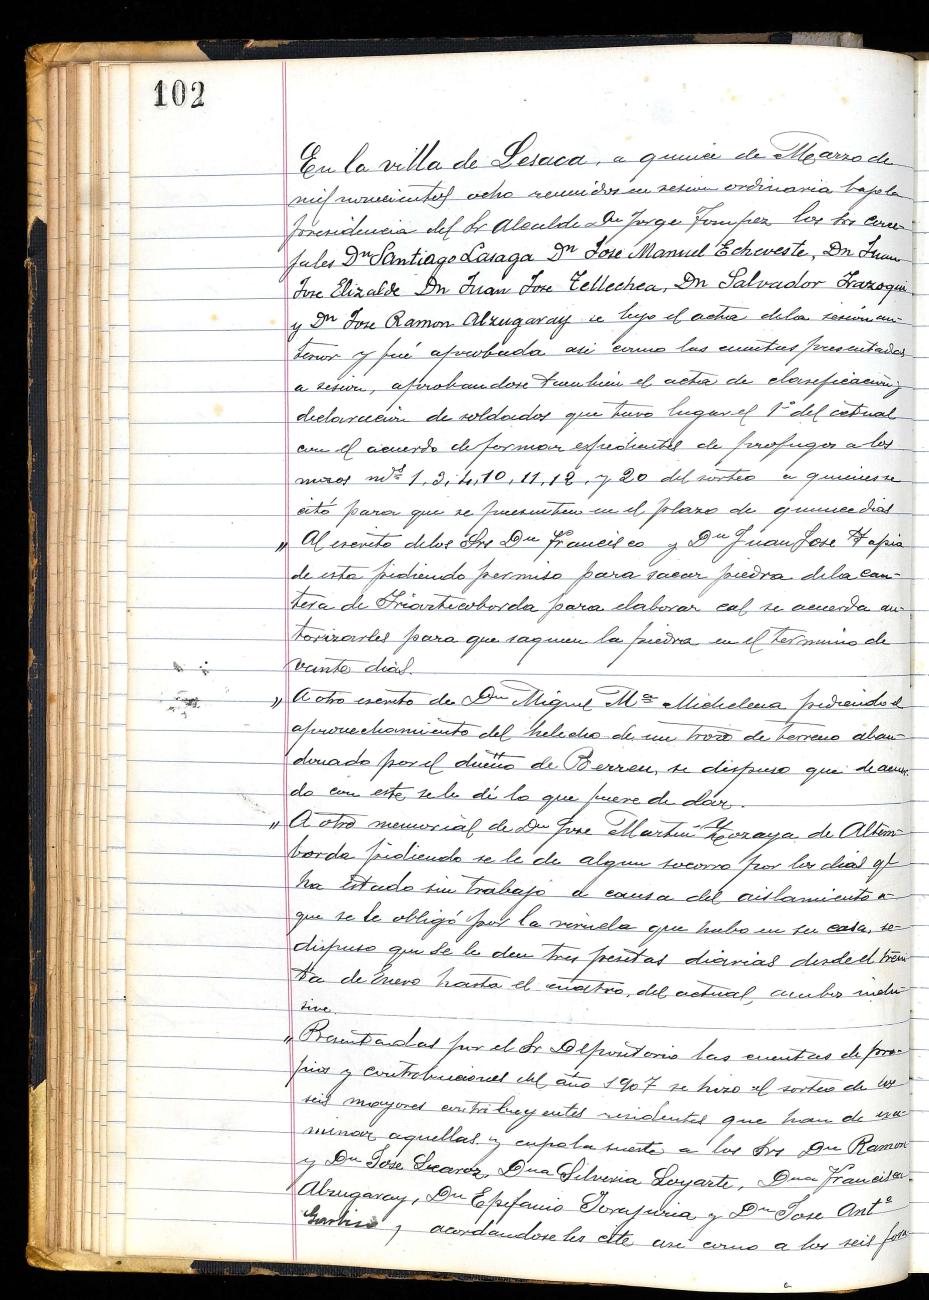 102
En la villa de Lesaca, a quince de Marzo de
mil novecientos ocho reunidos en sesion ordinaria bajo la
presidencia del Sr Alcalde Dn Jorge los Srs conce-
jales Dn Santiago Lasaga Dn Jose Manuel Echeveste, Dn Juan
Jose Elizalde Dn Juan Jose Tellechea, Dn Salvador Irazoqui
y Dn Jose Ramon Alzugaray se leyo el acta dela sesión an-
terior y fué aprobada asi como las cuentas presentadas
a sesion, aprobandose tambien el acta de clasificación y
declaración de soldados que tuvo lugar el 1º del actual
con el acuerdo de formar espedientes de profugos a los
mozos nos 1, 3, 4, 10, 11, 12, y 20 del sorteo a quienes se
citó para que se presenten en el plazo de quince dias
" Al escrito delos Srs Dn Francisco y Dn Juan Jose Tapia
de esta pidiendo permiso para sacar piedra dela can-
tera de Iriarticoborda para elaborar cal se acuerda au-
torizarles para que saquen la piedra en el termino de
veinte dias.
" A otro escrito de Dn Miguel Mª Michelena pidiendo el
aprovechamiento del helecho de un trozo de terreno aban-
donado por el dueño de Berreu, se dispuso que de acuer-
do con este se le dé lo que fuere de dar.
" A otro memorial de Dn Jose Martin de Altem-
borda pidiendo se le de algun socorro por los dias qe
ha estado sin trabajo a causa del aislamiento a
que se le obligó por la viruela que hubo en su casa, se
dispuso que se le den tres pesetas diarias desde el trein-
ta de Enero hasta el cuatro, del actual, ambos inclu-
sive.
" Presentadas por el Sr Depositario las cuentas de pro-
pios y contribuciones del año 1907 se hizo el sorteo de los
seis mayores contribuyentes residentes que han de exa-
minar aquellas y cupo la suerte a los Srs Dn Ramon
y Dn Jose Dna Silveria Loyarte, Dna Francisca
Alzugaray, Dn Epifanio y Dn Jose Antº
y acordandose les cite asi como a los seis fora-